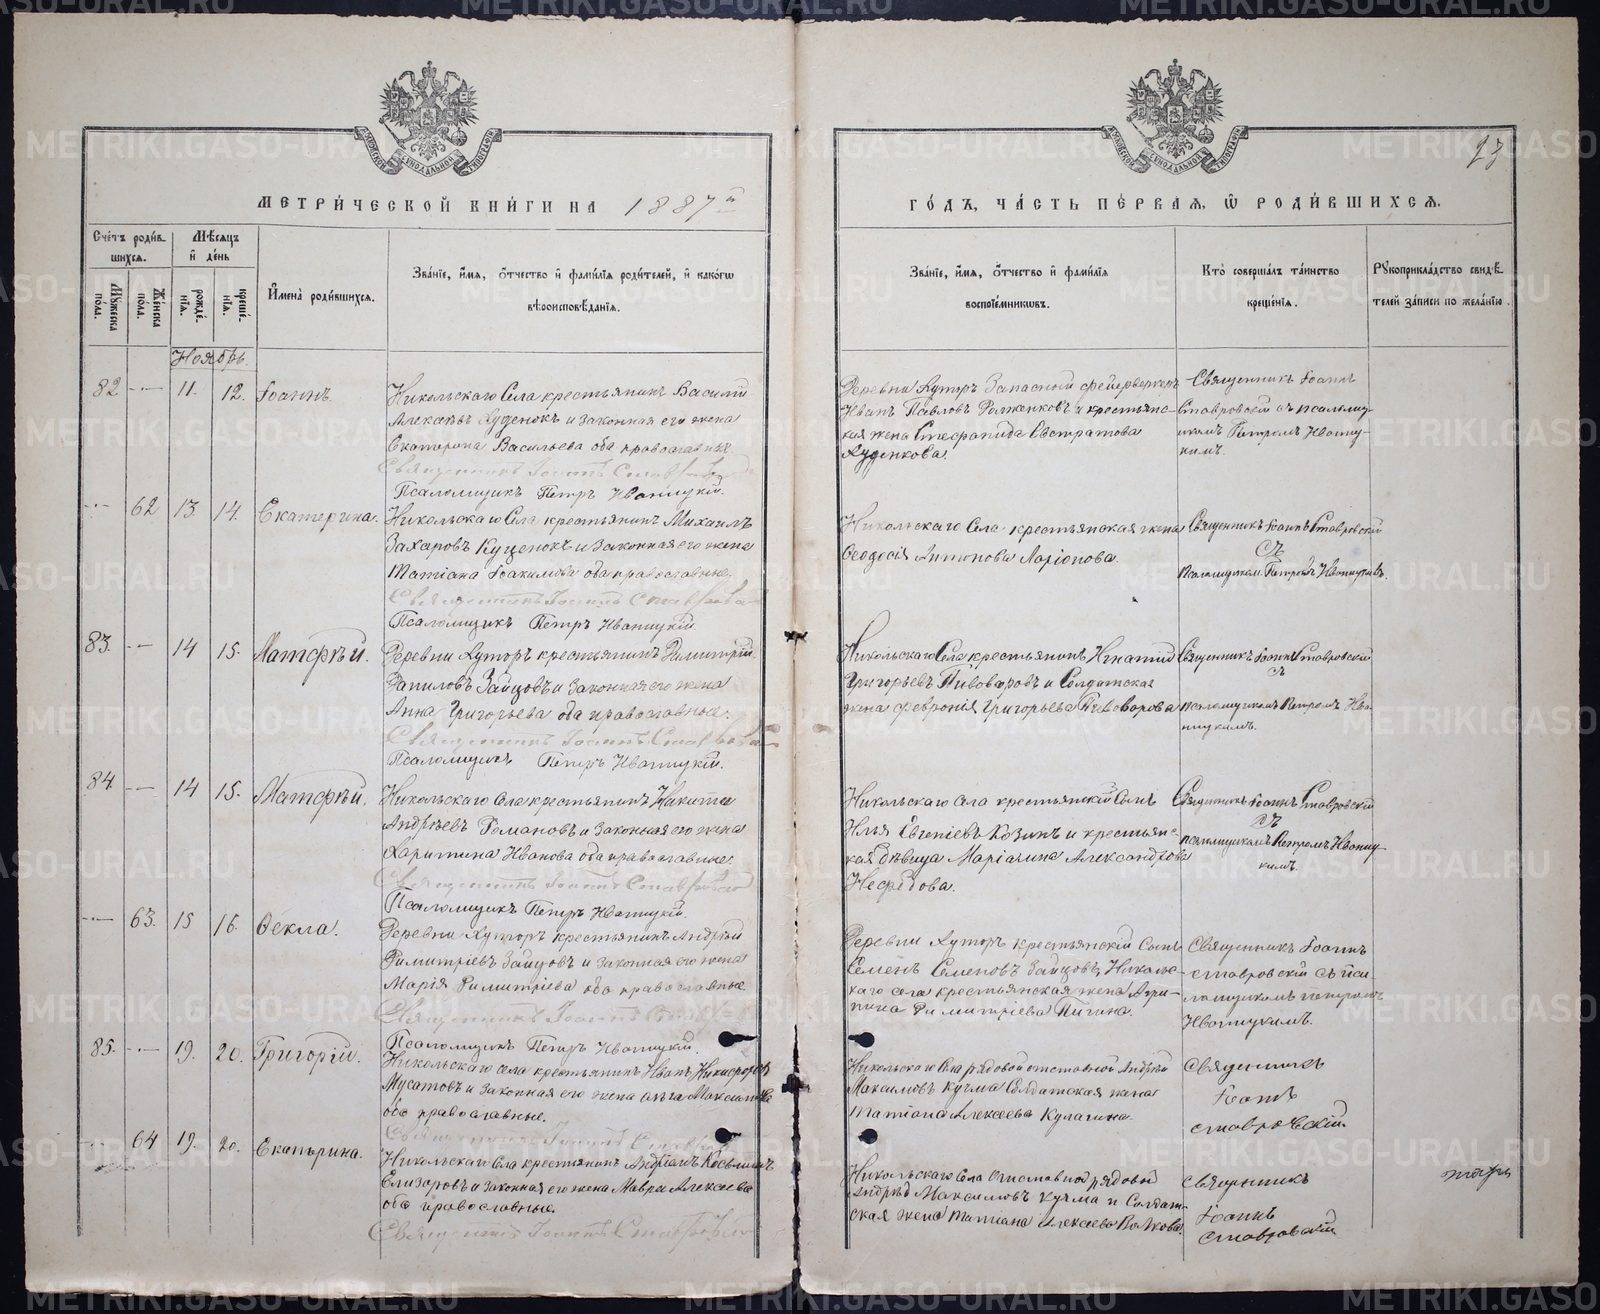 МЕТРИ́ЧЕСКОЙ КНИ́ГИ НА 1887й
ГО́ДЪ, ЧА́СТЬ ПЕ́РВАЯ, Ѽ РОДИ́ВШИХСЯ.
Сче́тъ роди́в-
шихся.
Мѣ́сяцъ
и҆ де́нь
Му́жеска
пола.
Же́нска
пола.
рожде́-
нїя.
креще́-
нїя.
И҆мена̀ роди́вшихся.
Зва́нїе, и҆́мя, ѻ҆́тчество и҆ фами́лїя роди́телей, и҆ како́гѡ
вѣроисповѣ́данїя.
Зва́нїе, и҆́мя, ѻ҆́тчество и҆ фами́лїя
воспрїе́мникѡвъ.
Кто̀ соверша́лъ та́инство
креще́нїя.
Рꙋкоприкла́дство свидѣ́-
телей за́писи по жела́нїю.
Ноябрь.
82 — 11. 12. Іоаннъ
Никольскаго Села крестьянинъ Василій
Алексѣевъ Куценокъ и законная его жена
Екатерина Васильева оба православные
Священникъ Іоаннъ Ставровскій
Псаломщикъ Петръ Иваницкій.
Деревни Хуторъ Запасный фейерверкеръ
Иванъ Павловъ и крестьянс-
кая жена Стефанида Евстратова
Куценкова.
Священникъ Іоаннъ
Ставровскій съ псаломщ-
икомъ Петромъ Иваниц-
кимъ.
— 62 13. 14. Екатерина.
Никольскаго Села крестьянинъ Михаилъ
Захаровъ Куценокъ и законная его жена
Татіана Іоакимова оба православные.
Священникъ Іоаннъ Ставровскій
Псаломщикъ Петръ Иваницкій.
Никольскаго Села крестьянская жена
Ѳеодосія Антонова Ларіонова.
Священникъ Іоаннъ Ставровскій
съ
псаломщикомъ Петромъ Иваницкимъ.
83. — 14 15. Матѳѣй.
Деревни Хуторъ крестьянинъ Димитрій
Даниловъ Зайцовъ и законная его жена
Анна Григорьева оба православные.
Священникъ Іоаннъ Ставровскій
Псаломщикъ Петръ Иваницкій.
Никольскаго Села крестьянинъ Игнатій
Григорьевъ Пивоваровъ и Солдатская
жена Февронія Григорьева Пивоварова
Священникъ Іоаннъ Ставровскій
съ
псаломщикомъ Петромъ Ива-
ницкимъ.
84. — 14 15. Матѳѣй.
Никольскаго Села крестьянинъ Никита
Андреевъ Романовъ и законная его жена
Харитина Иванова оба православные.
Священникъ Іоаннъ Ставровскій
Псаломщикъ Петръ Иваницкій.
Никольскаго Села крестьянскій Сынъ
Илья Евгеніевъ Козинъ и крестьянс-
кая дѣвица Маріанна Александрова
Нефедова.
Священникъ Іоаннъ Ставровскій
съ
псаломщикомъ Петромъ Иваниц-
кимъ.
— 63. 15 16. Ѳекла.
Деревни Хуторъ крестьянинъ Андрей
Димитріевъ Зайцовъ и законная его жена
Марія Димитріева оба православные
Священникъ Іоаннъ Ставровскій
Псаломщикъ Петръ Иваницкій.
Деревни Хуторъ крестьянскій Сынъ
Семенъ Семеновъ Зайцовъ, Никольс-
каго села крестьянская жена Агри-
пина Димитріева Пигина.
Священникъ Іоаннъ
Ставровскій съ пса-
ломщикомъ Петромъ
Иваницкимъ.
85. — 19. 20. Григорій.
Никольскаго села крестьянинъ Иванъ Никифоровъ
Мусатовъ и законная его жена Ольга Максимова
оба православные.
Священникъ Іоаннъ Ставровскій
Никольскаго Села рядовой отставной Андрей
Максимовъ Кучма Солдатская жена
Татіана Алексѣева Кулагина.
Священникъ
Іоаннъ
Ставровскій.
64 19. 20. Екатерина.
Никольскаго Села крестьянинъ Косьминъ
Елизаровъ и законная его жена Мавра Алексѣева
оба православные.
Священникъ Іоаннъ Ставровскій
Никольскаго Села Отставной рядовой
Андрей Максимовъ Кучма и Солдат-
ская жена Татіана Алексѣева Волкова.
Священникъ
Іоаннъ
Ставровскій
METRIKI.GASO-URAL.RU